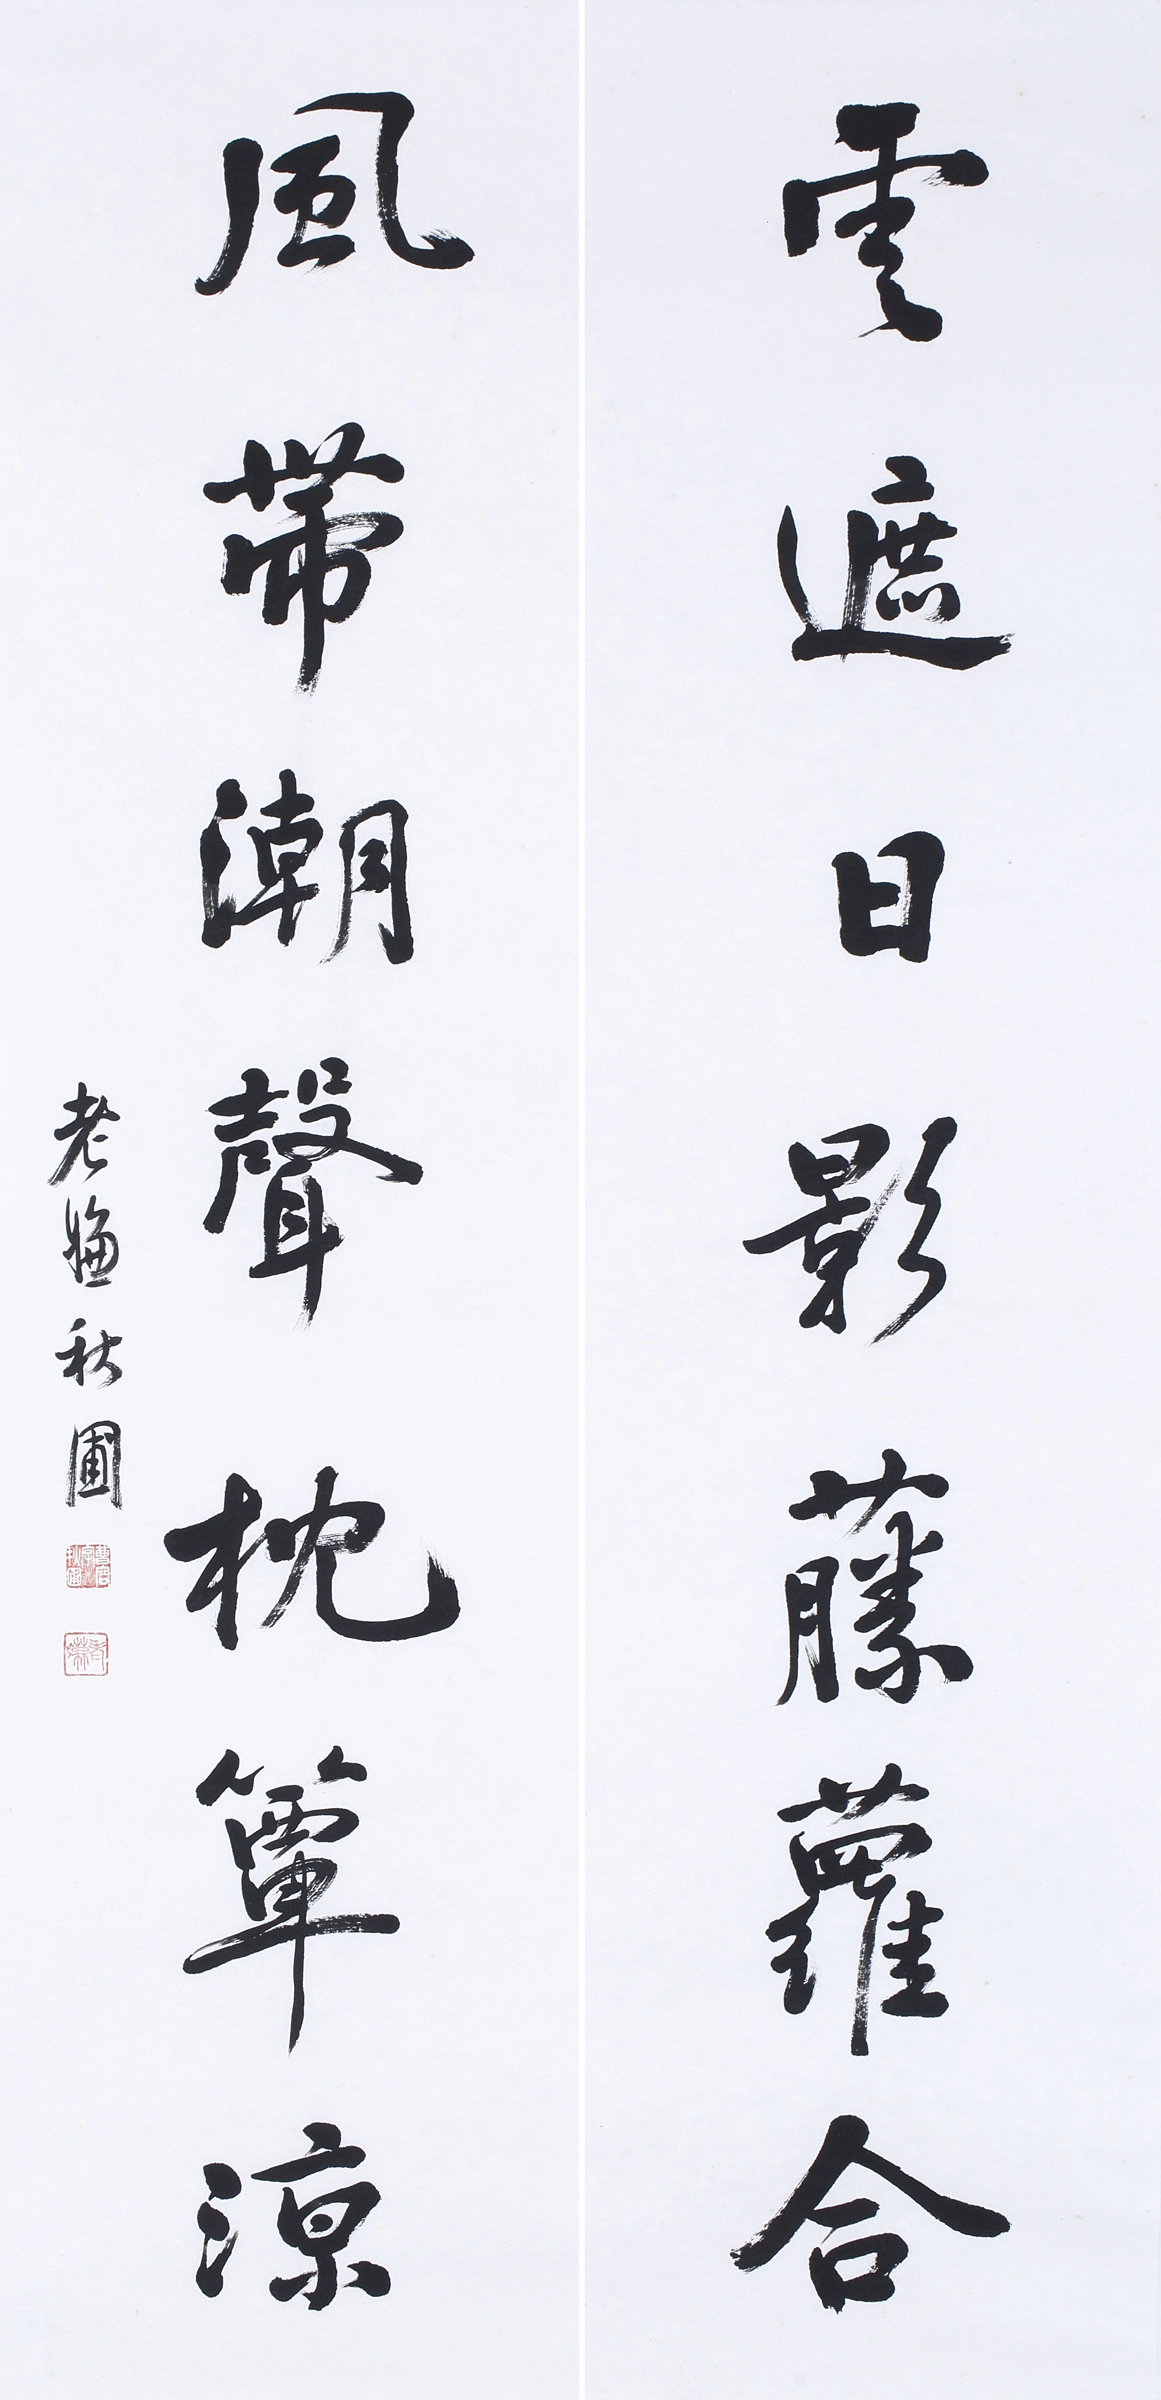 雲遮日影藤蘿合
風帶潮聲枕簟涼
老嫌秋圃